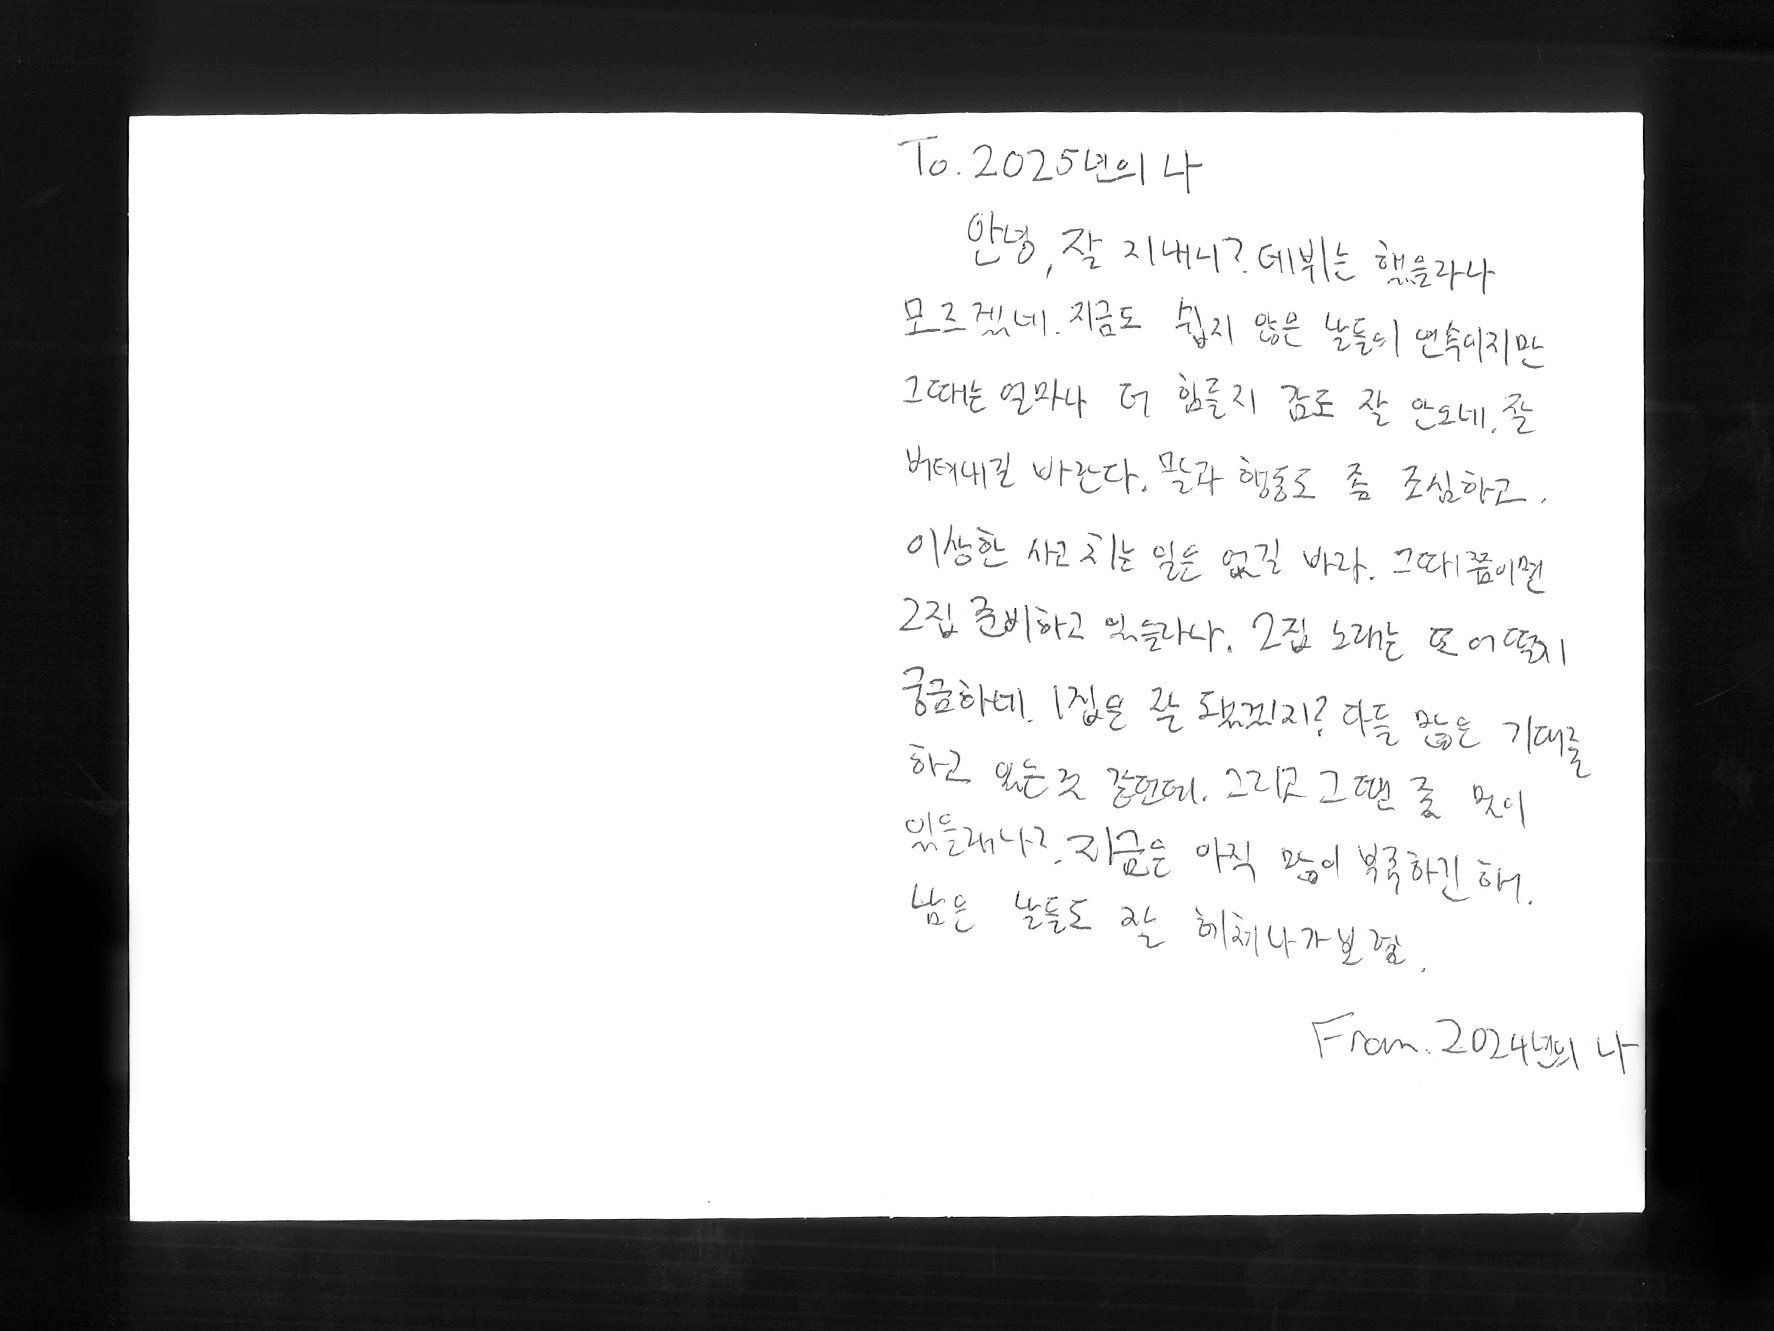 To. 2025년의 나
안녕, 잘 지내니? 데뷔는 했을라나
모르겠네. 지금도 쉽지 않은 날들의 연속이지만
그때는 얼마나 더 힘들지 감도 잘 안오네. 잘
버텨내길 바란다. 말과 행동도 좀 조심하고.
이상한 사고 치는 일은 없길 바라. 그때쯤이면
2집 준비하고 있을라나. 2집 노래는 또 어떨지
궁금하네. 1집은 잘 됐겠지? 다들 많은 기대를
하고 있는 것 같던데. 그리고 그땐 좀 멋이
있을래나?. 지금은 아직 많이 부족하긴 해.
남은 날들도 잘 헤쳐나가보렴.
From. 2024년의 나